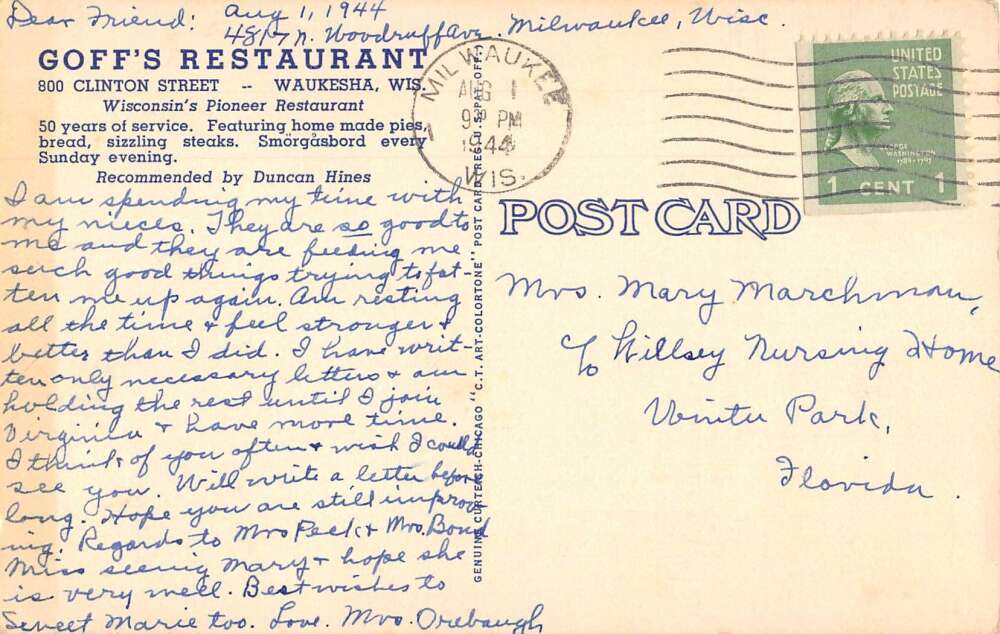 Dear Friend: Aug 1, 1944
4817 N. Woodruff Ave. Milwaukee, Wisc.
GOFF'S RESTAURANT
800 CLINTON STREET -- WAUKESHA, WIS.
Wisconsin's Pioneer Restaurant
50 years of service. Featuring home made pies,
bread, sizzling steaks. Smörgåsbord every
Sunday evening.
Recommended by Duncan Hines
I am spending my time with
my nieces. They are so good to
me and they are feeding me
such good things trying to fat-
ten me up again. Am resting
all the time & feel stronger &
better than I did. I have writ-
ten only necessary letters & am
holding the rest until I join
Virginia & have more time.
I think of you often & wish I could
see you. Will write a letter before
long. Hope you are still improv
ing. Regards to Mrs Peck & Mrs. Bond
Miss seeing Mary & hope she
is very well. Best wishes to
Sweet Marie too. Love. Mrs. Orebaugh
GENUINE CURTEICH-CHICAGO "C.T. ART-COLORTONE" POST CARD (REG. U.S. PAT. OFF.)
MILWAUKEE
1
AUG 1
9 30 PM
1944
WIS.
UNITED
STATES
POSTAGE
GEORGE
WASHINGTON
1789-1797
1 CENT 1
POST CARD
Mrs. Mary Marchman,
c/o Willsey Nursing Home
Winter Park,
Florida.